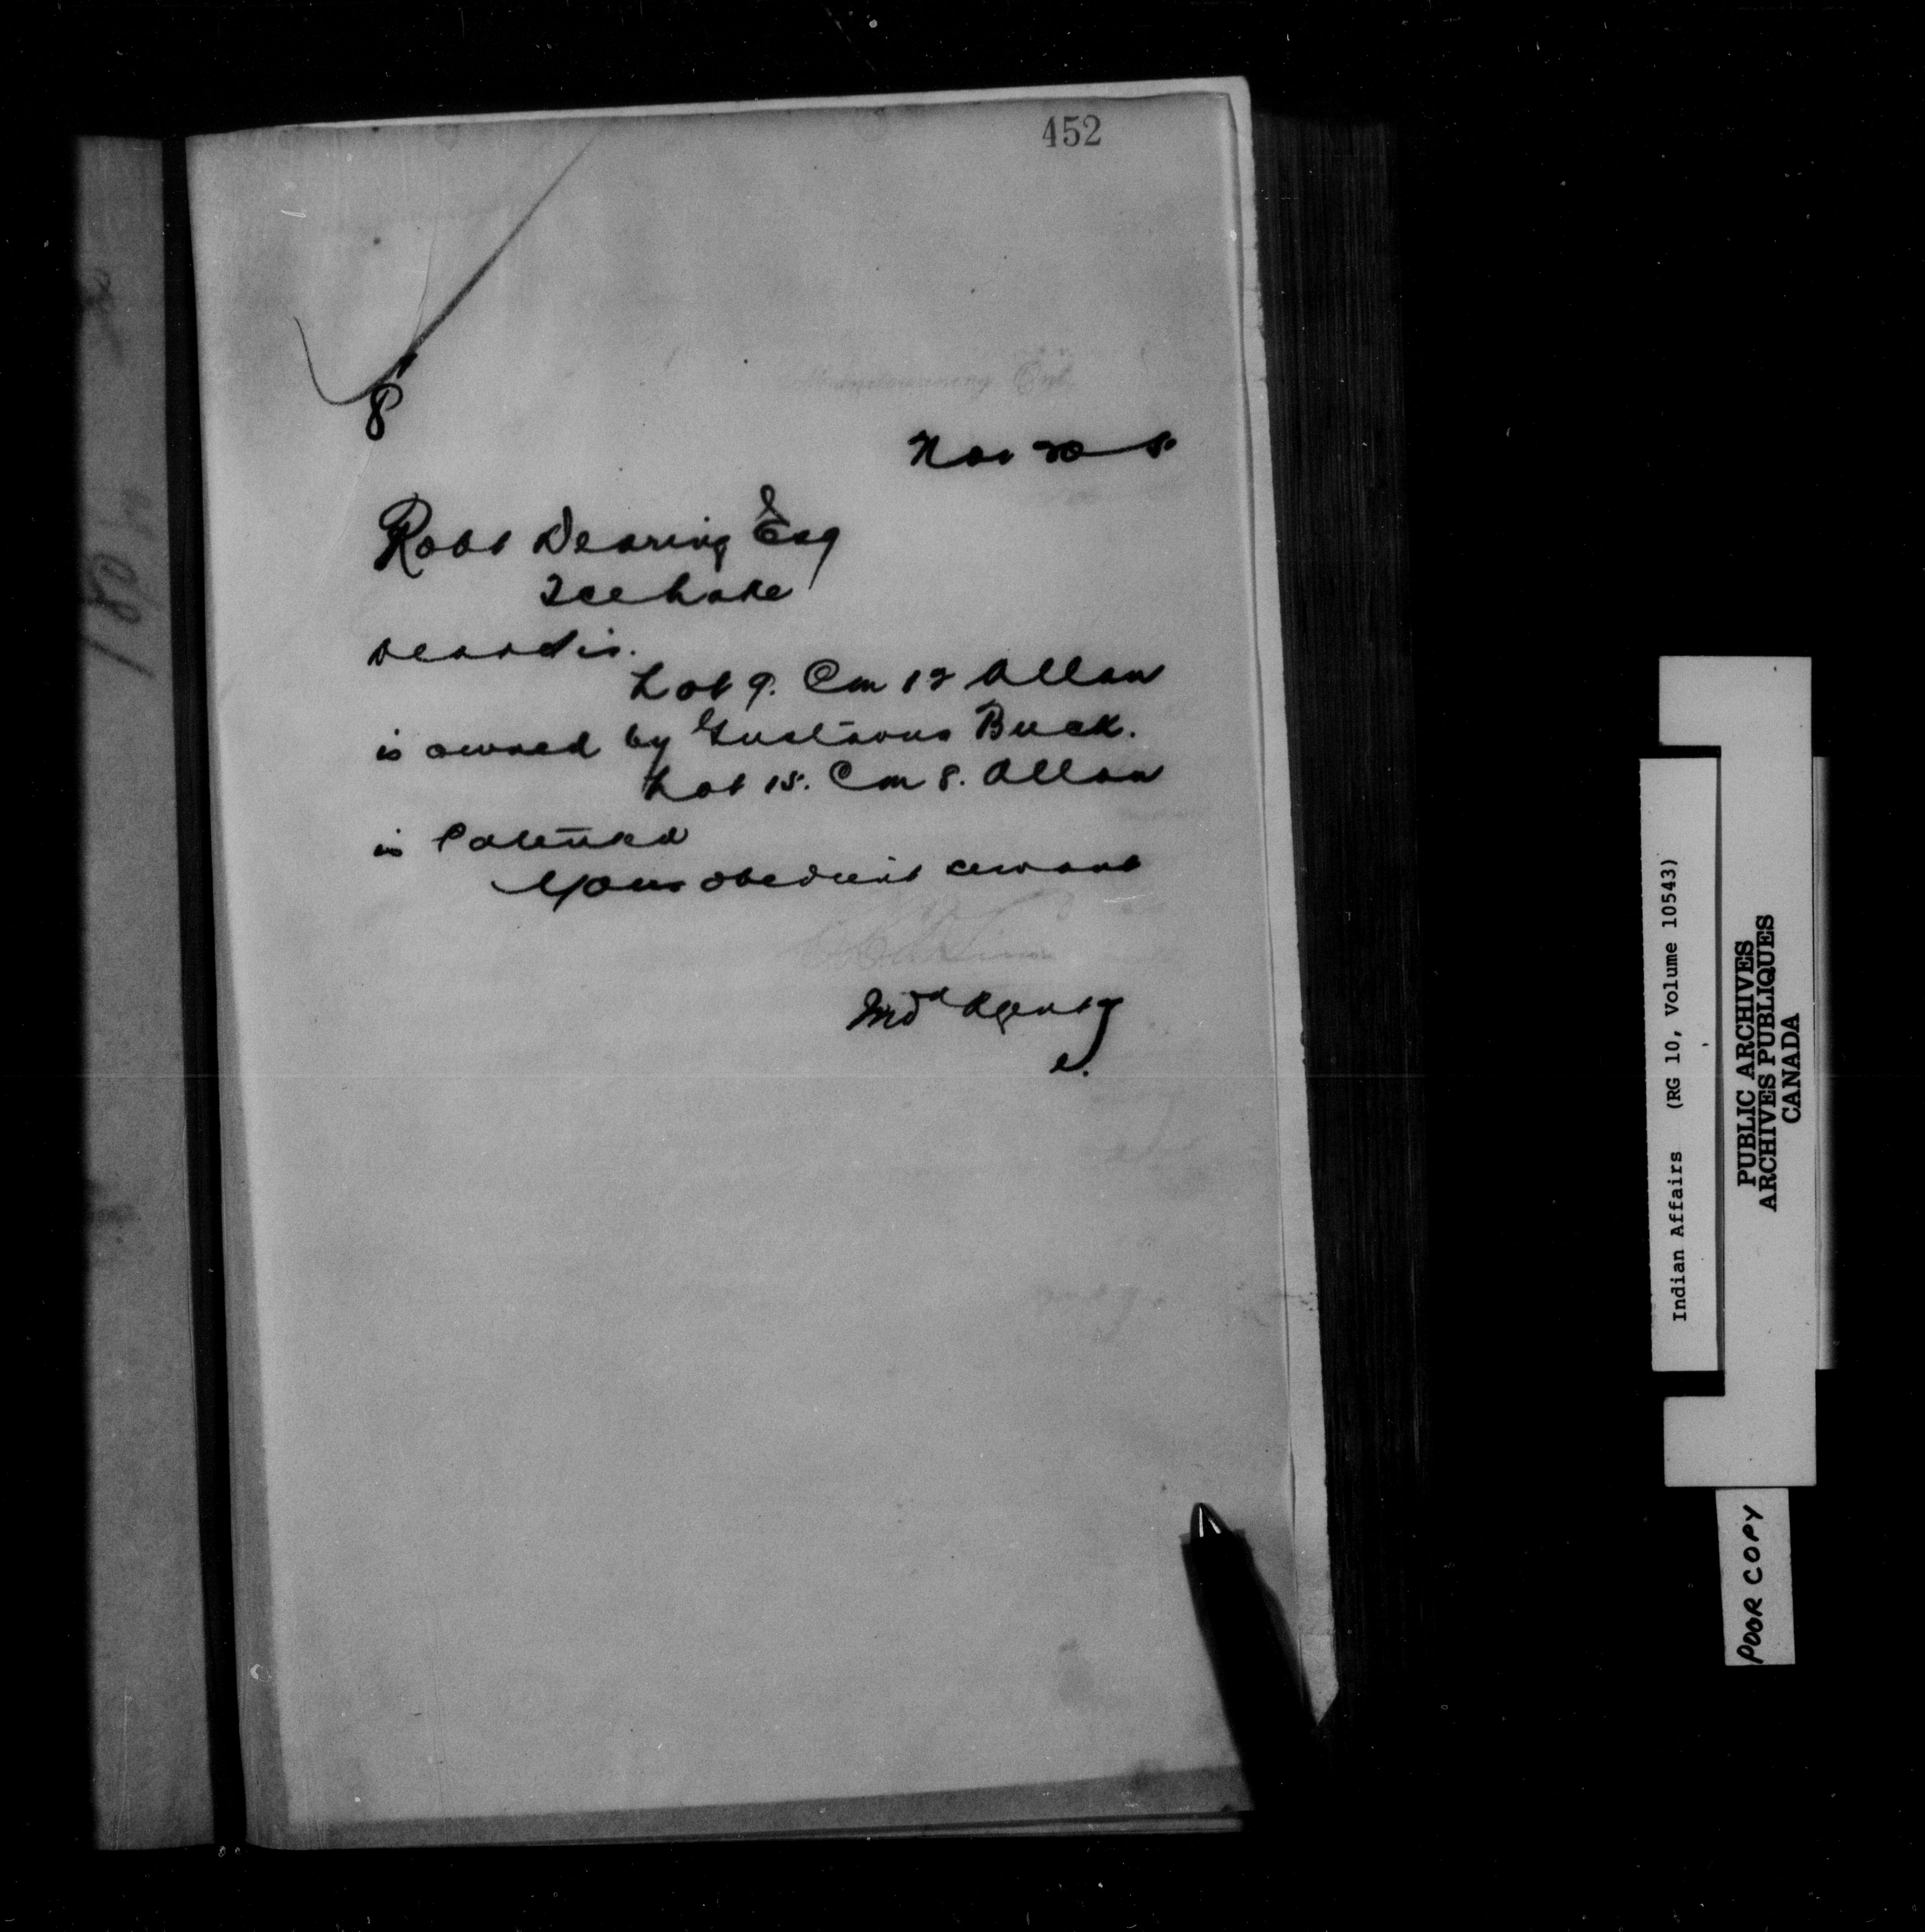 452
8
Manitowaning Ont
Nov 20 8
Robt Dearing Esq
Ice Lake
Dear Sir.
Lot 9. Con 12 Allan
is owned by Gustavus Buck.
Lot 15. Con 8. Allan
is Patented
Your obedient servant
Ind Agent
Indian Affairs (RG 10, Volume 10543)
PUBLIC ARCHIVES
ARCHIVES PUBLIQUES
CANADA
POOR COPY